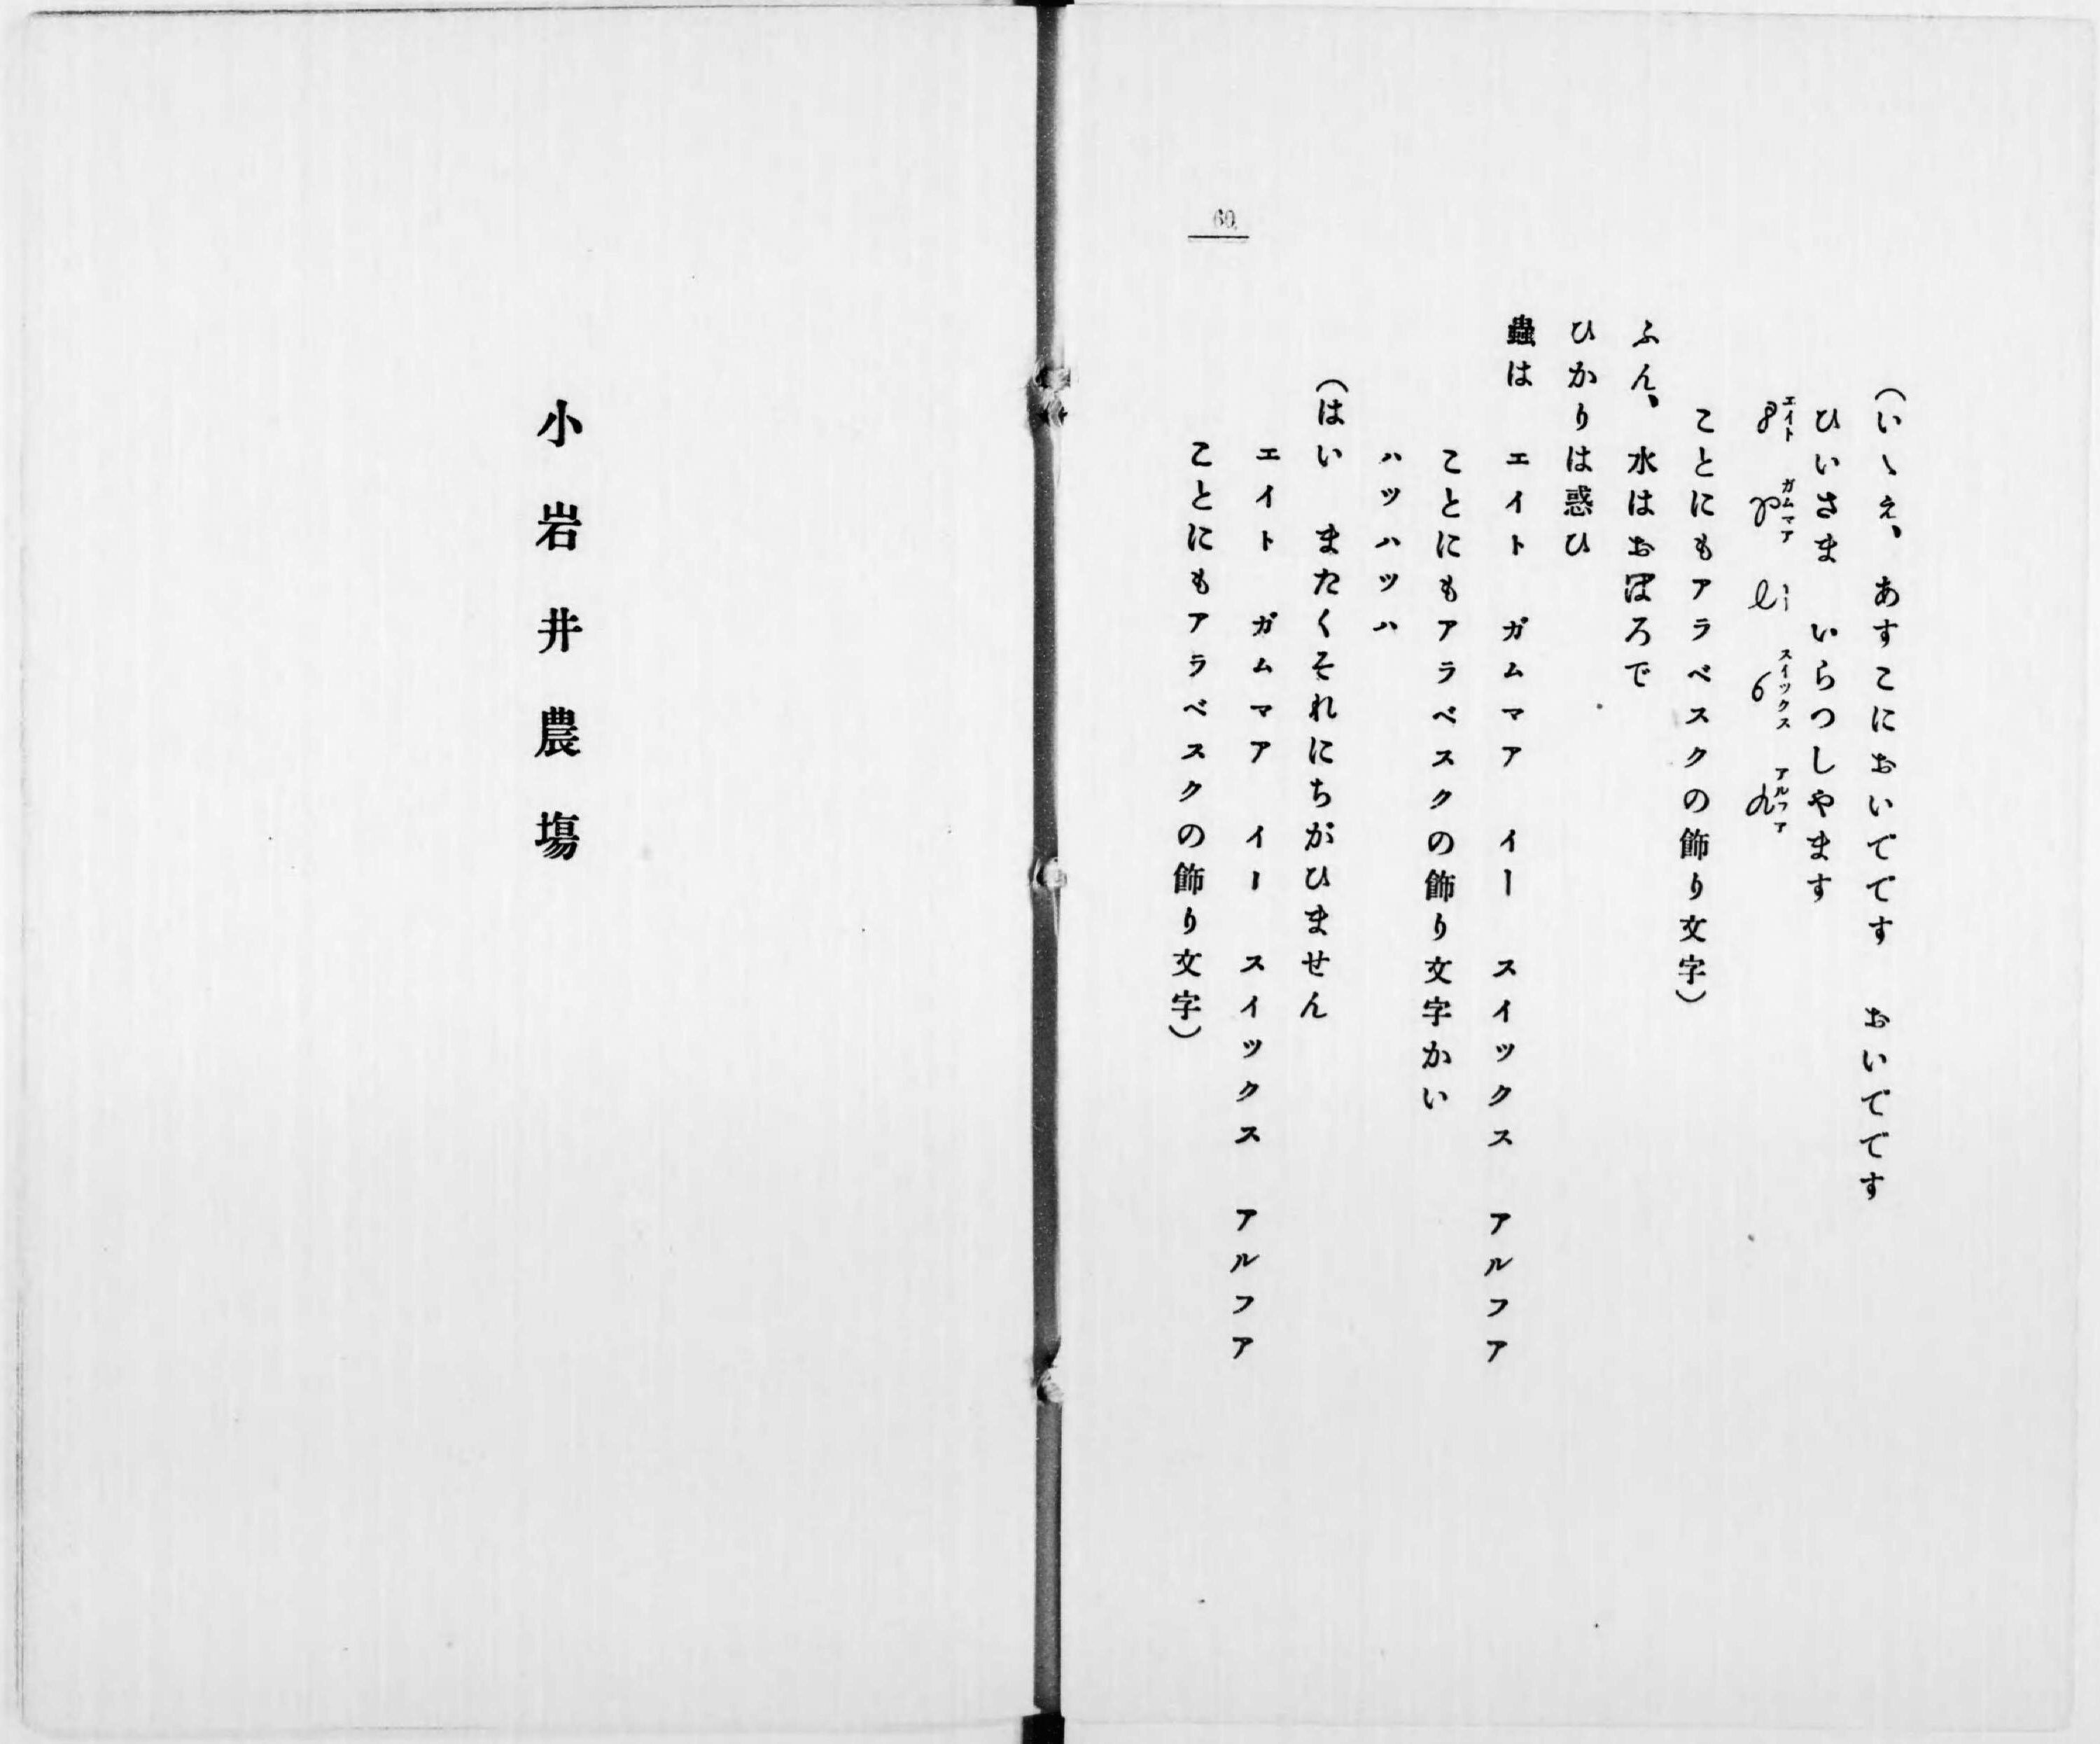 (いゝえ、あすこにおいでです　おいでです
ひいさま　いらつしやます
8　γ　e　6　α
エイト　ガムマア　イー　スイックス　アルファ
ことにもアラベスクの飾り文字)
ふん、水はおぼろで
ひかりは惑ひ
蟲は　エイト　ガムマア　イー　スイックス　アルファ
ことにもアラベスクの飾り文字かい
ハツハツハ
(はい　またくそれにちがひません
エイト　ガムマア　イー　スイックス　アルファ
ことにもアラベスクの飾り文字)
60
小岩井農塲